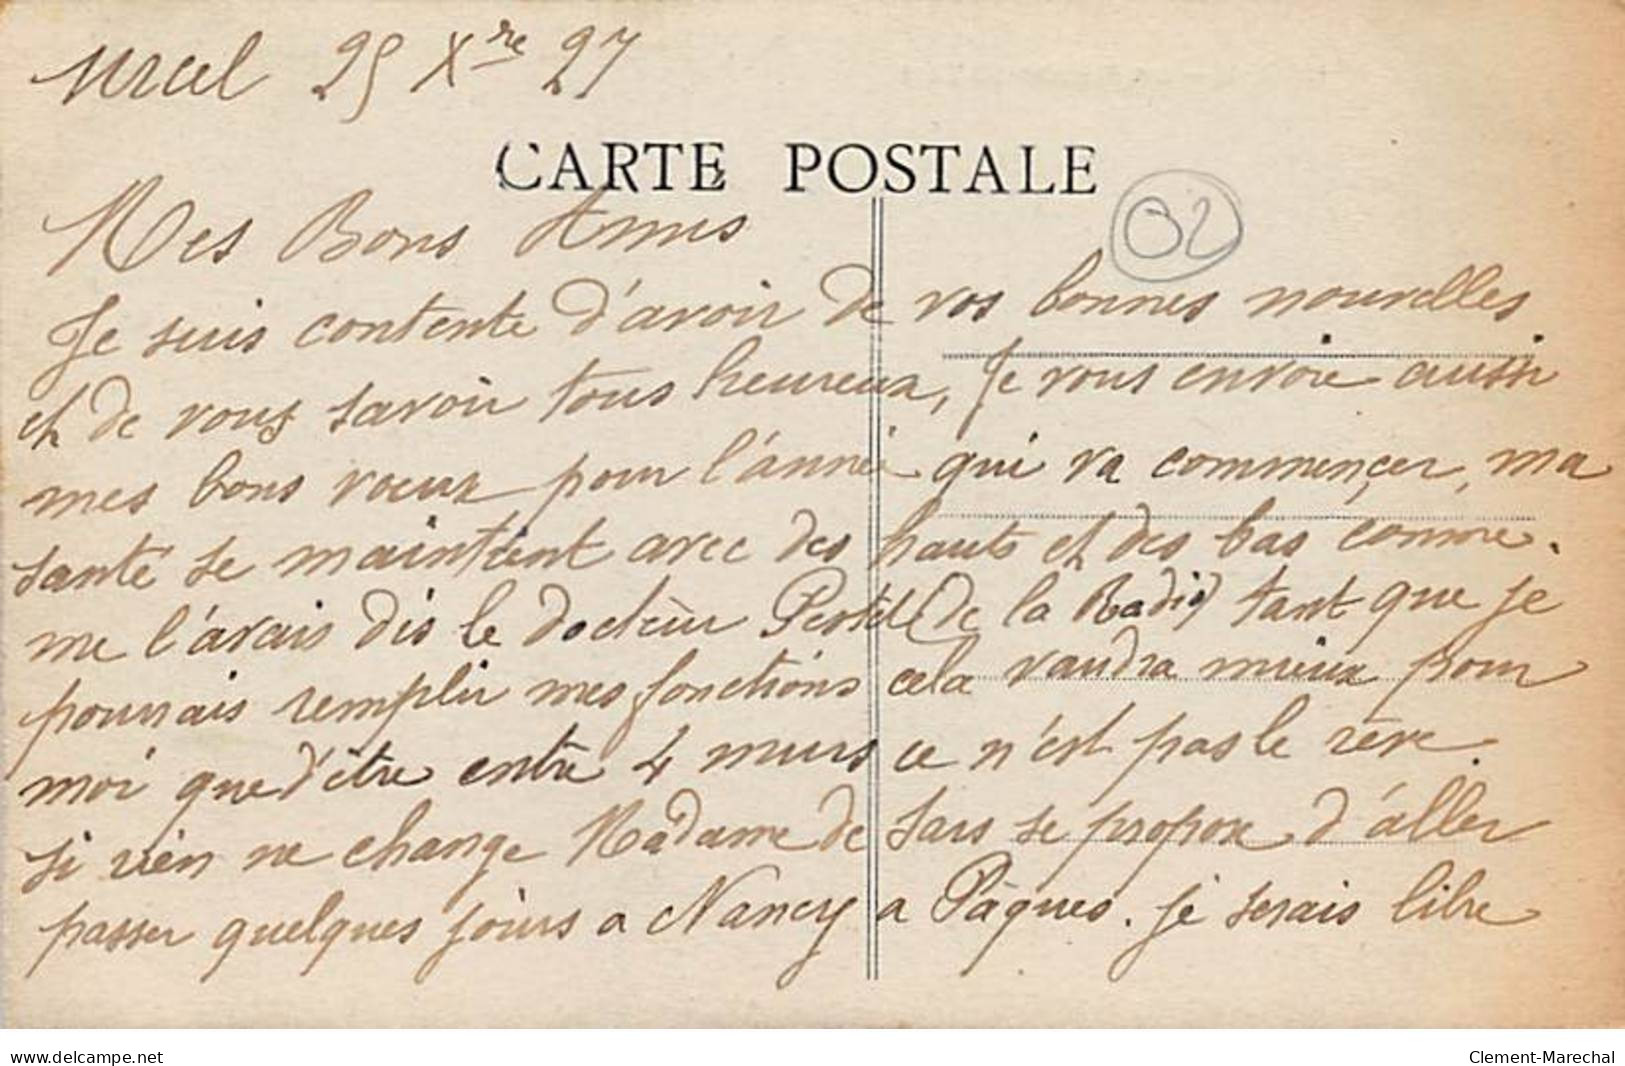 Urcel 25 Xre 27
CARTE POSTALE
02
Mes Bons Amis
Je suis contente d'avoir de vos bonnes nouvelles
et de vous savoir tous heureux, Je vous envoie aussi
mes bons voeux pour l'année qui va commençer, ma
santé se maintient avec des hauts et des bas comme.
me l'avais dis le docteur (de la Radio) tant que je
pourrais remplir mes fonctions cela vaudra mieux pour
moi que d'être entre 4 murs ce n'est pas le rêve.
si rien ne change Madame de Sars se propose d'aller
passer quelques jours a Nancy a Pâques. je serais libre
www.delcampe.net
Clement-Marechal